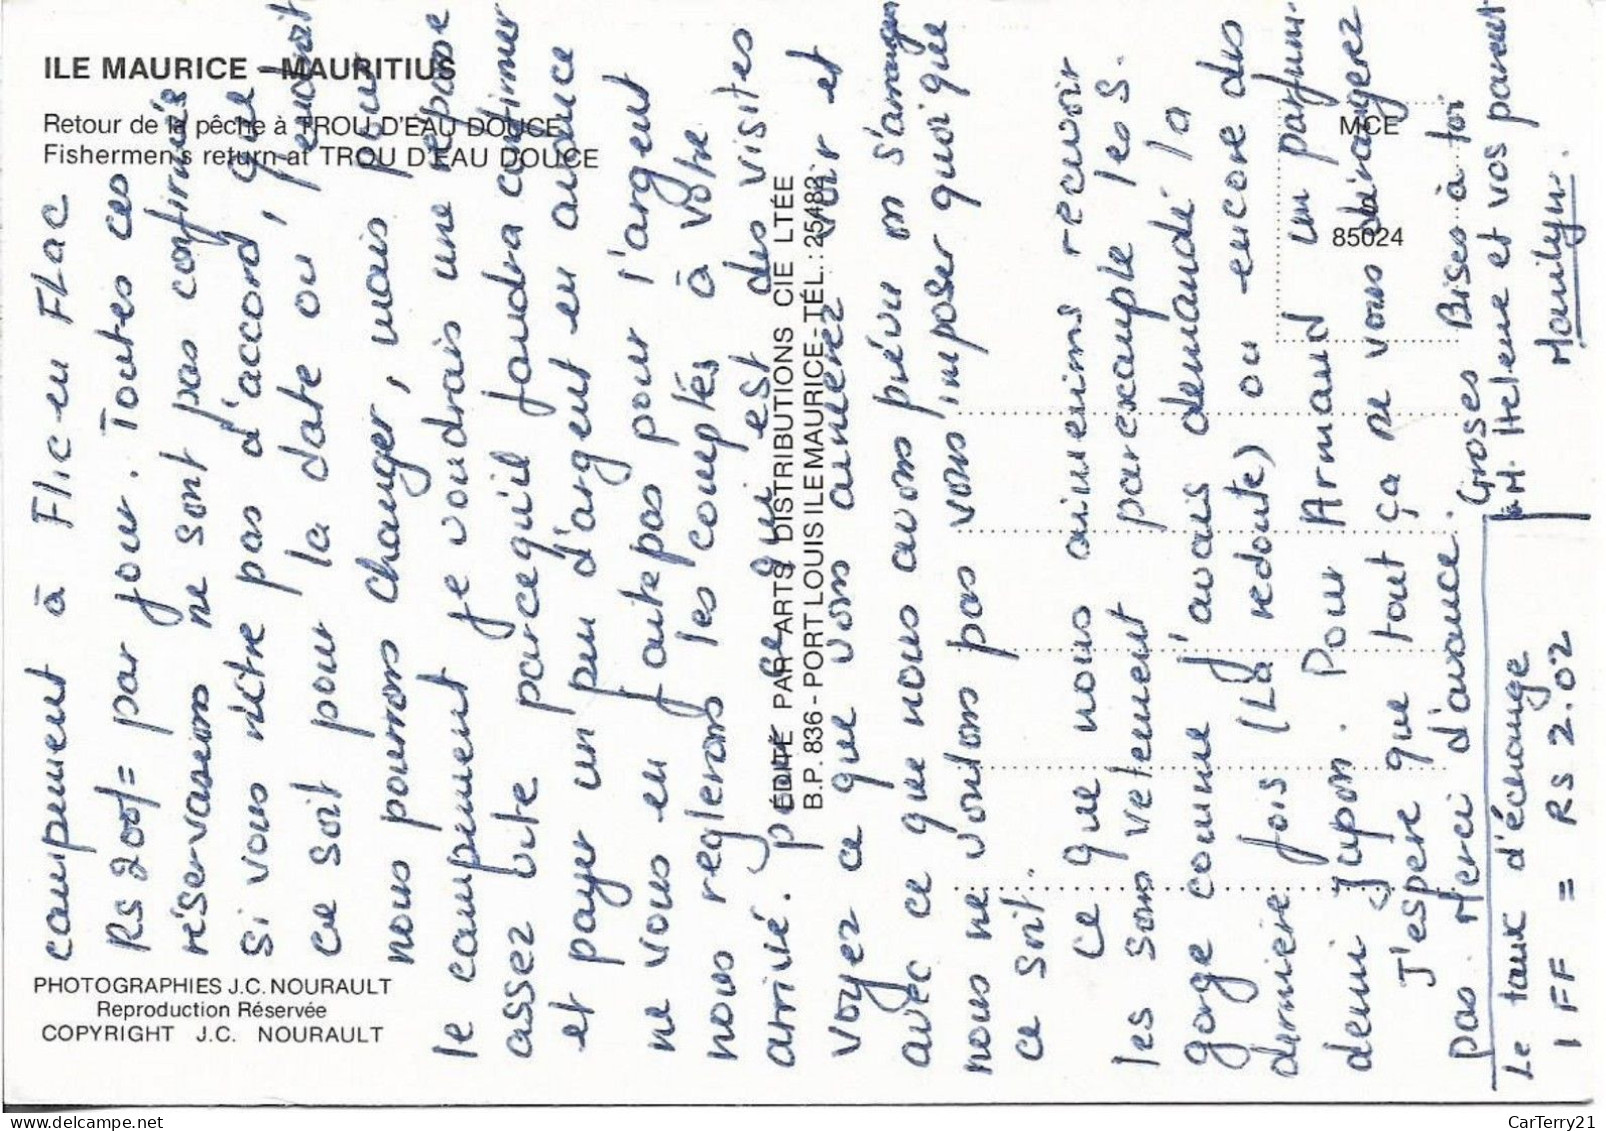 ILE MAURICE - MAURITIUS
Retour de la pêche à TROU D'EAU DOUCE
Fishermen's return at TROU D'EAU DOUCE
PHOTOGRAPHIES J.C. NOURAULT
Reproduction Réservée
COPYRIGHT J.C. NOURAULT
ÉDITÉ PAR ARTS DISTRIBUTIONS CIE LTÉE
B.P. 836 - PORT LOUIS ILE MAURICE - TÉL.: 25482
MCE
85024
campement à Flic en FLac
Rs 200/= par jour. Toutes ces
réservations ne sont pas confirmés
si vous n'etre pas d'accord, que
ce soit pour la date ou l'endroit
nous pourrons changer, mais pour
le campement je voudrais une réponse
assez vite parcequ'il faudra confirmer
et payer un peu d'argent en avance
ne vous en faite pas pour l'argent
nous reglerons les comptés à votre
arrivié. pour ce qui est des visites
voyez ce que vous aimerez voir et
avec ce que nous avons prévu on s'arrangera
nous ne voulons pas vous imposer quoi que
ce soit.
Ce que nous aimerions recevoir
les sous vetement par example les S.
gorge comme j'avais demandé la
dernière fois (La redoute) ou encore des
demi jupon. Pour Armand un parfum
J'espère que tout ça ne vous dérangerez
pas. Merci d'avance. Groses Bises à toi
M. Helene et vos parent
Marilyn.
Le taux d'échange
1 FF = RS 2.02
CarTerry21